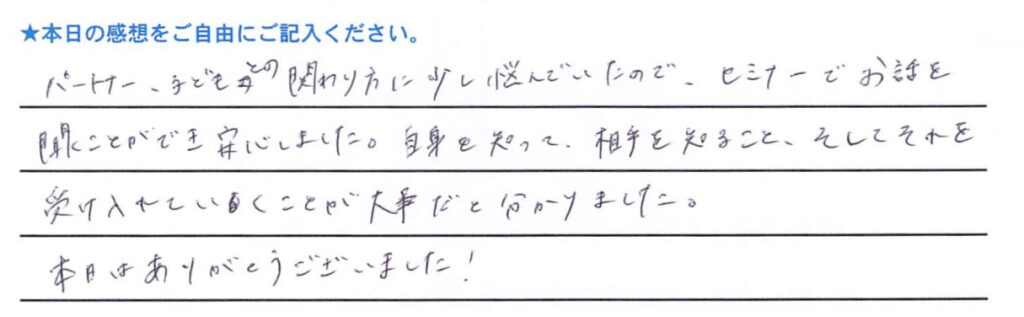 ★本日の感想をご自由にご記入ください。
パートナー、子どもとの関わり方に少し悩んでいたので、セミナーでお話を
聞くことができ安心しました。自身を知って、相手を知ること、そしてそれを
受け入れていくことが大事だと分かりました。
本日はありがとうございました!